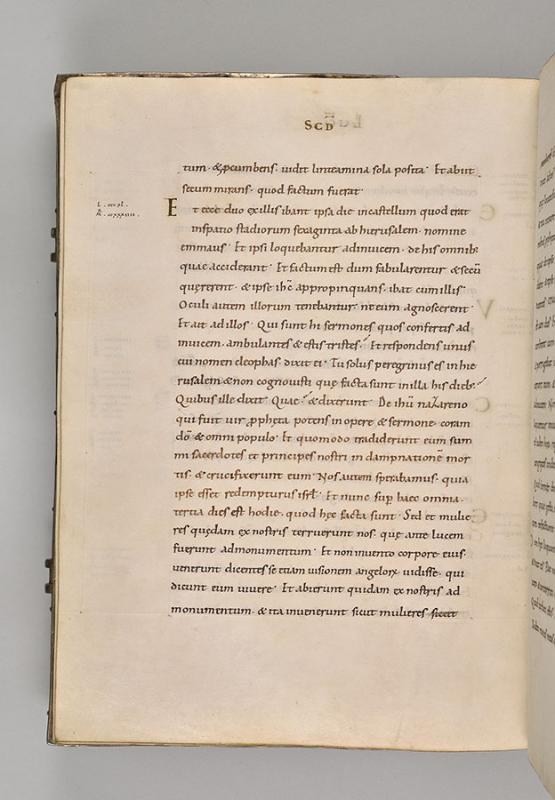 SCD
tum · & pcumbens · uidit linteamina sola posita · Et abiit
secum mirans · quod factum fuerat ·
Et ecce duo ex illis ibant ipsa die incastellum quod erat
inspatio stadiorum sexaginta ab hierusalem · nomine
emmaus · Et ipsi loquebantur adinuicem · de his omnib;
quae acciderant · Et factum est dum fabularentur & secū
quęrerent · & ipse ihc̄ appropinquans · ibat cum illis ·
Oculi autem illorum tenebantur · ne eum agnoscerent ·
Et ait ad illos · Qui sunt hi sermones quos confertis ad
inuicem · ambulantes & estis tristes · Et respondens unus
cui nomen cleophas · dixit ei · Tu solus peregrinus es in hie
rusalem & non cognouisti quę facta sunt in illa his dieb;
Quibus ille dixit · Quae · & dixerunt · De ihū nazareno
qui fuit uir ꝓpheta potens in opere & sermone · coram
dō & omni populo · Et quomodo tradiderunt eum sum
mi sacerdotes et principes nostri in dampnationē mor
tis · & crucifixerunt eum · Nos autem sperabamus · quia
ipse esset redempturus isrl̄ · Et nunc sup haec omnia ·
tertia dies est hodie · quod hęc facta sunt · Sed et mulie
res quędam ex nostris terruerunt nos · quę ante lucem
fuerunt admonumentum · Et non inuento corpore eius ·
uenerunt dicentes se etiam uisionem angelorꝝ uidisse · qui
dicunt eum uiuere · Et abierunt quidam ex nostris ad
monumentum · & ita inuenerunt sicut mulieres